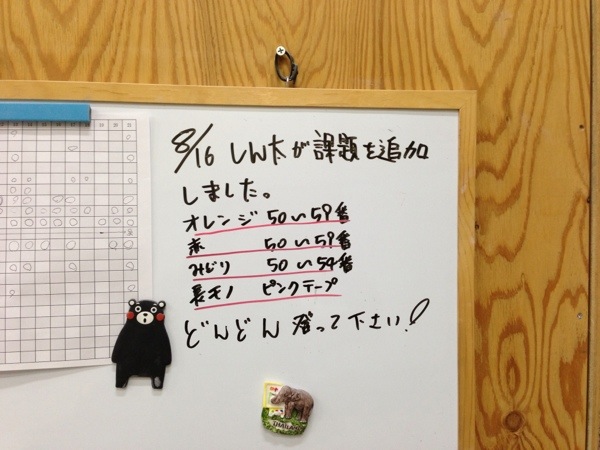 8/16 しん太が課題を追加
しました。
オレンジ 50〜59番
赤 50〜59番
みどり 50〜54番
長モノ ピンクテープ
どんどん登って下さい!
THAILAND